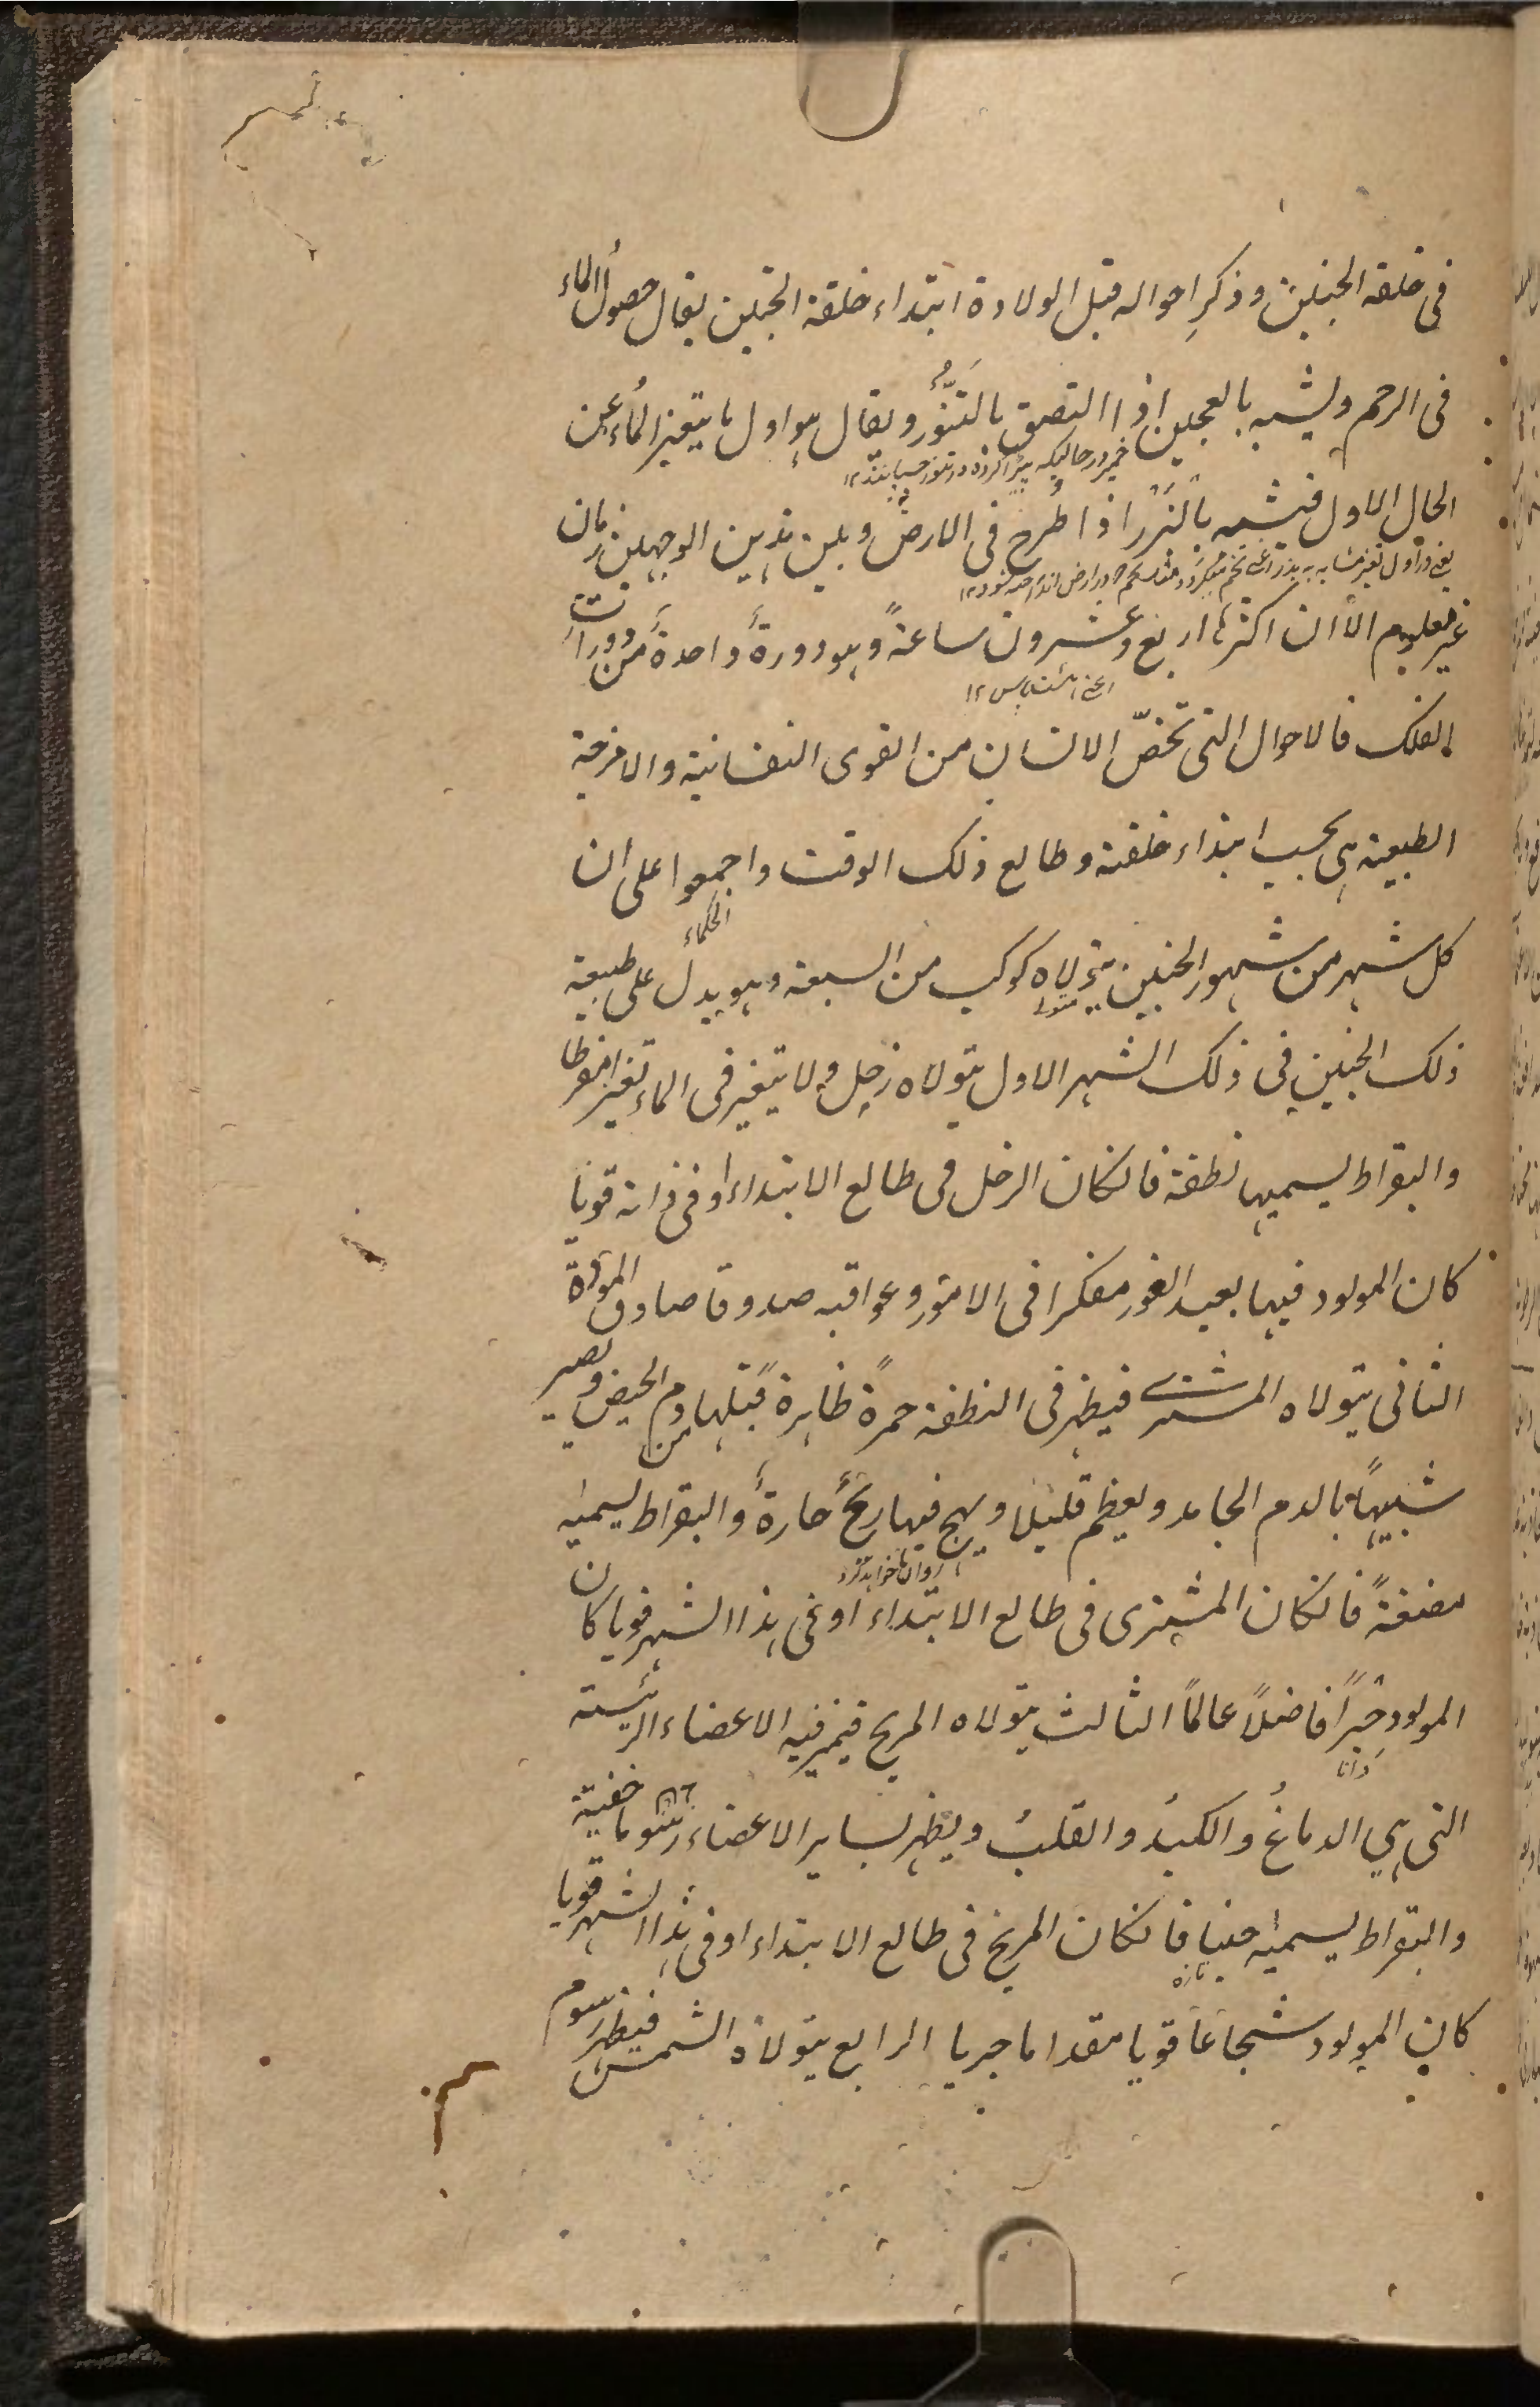 فى خلقة الجنين وذكرِ احواله قبل الولادة ابتداء خلقة الجنين يقال حصولُ الماء
فى الرحم ويشبه بالعجين اذا التصق بالتنّور ويقال هو اول ما يتغير الماءُ عن
خمير در حاليكه پيڑا كرده در تنور چسپانند ١٢
الحال الاول فيشبه بالبَزْر اذا طُرح فى الارض وبين هذين الوجهين زمان
يعنى در اول تغير مشابه به بذر
غير معلوم الا ان اكثرها اربع وعشرون ساعةً وهو دورةً واحدةً من دورات
الفلك فالاحوال التى تخصّ الانسان من القوى النفسانية والامزجة
الطبيعية هى بحسب ابتداء خلقته وطالع ذلك الوقت واجمعوا على ان
الحكماء
كل شهر من شهور الجنين يتولاه كوكب من السبعة وهو يدل على طبيعة
ذلك الجنين فى ذلك الشهر الاول يتولاه زحل ولا يتغير فى الماء تغيرا مفرطا
والبقراط يسميها نطفة فانكان الزحل فى طالع الابتداء او فى ذاته قويا
كان المولود فيها بعيد الغور مفكرا فى الامور وعواقبه صدوقا صادق المودّة
الثانى يتولاه المشترى فيظهر فى النطفة حمرةً ظاهرة قبلها من دم الحيض ويصير
شبيهاً بالدم الجامد ويعظم قليلا ويهيج فيها ريحً حارةً والبقراط يسميه
مضغةً فانكان المشترى فى طالع الابتداء او فى هذا الشهر قويا كان
المولود حبراً فاضلاً عالماً الثالث يتولاه المريخ فيتميز فيه الاعضاء الرئيسة
دانا
التى هي الدماغُ والكبدُ والقلبُ ويظهر لساير الاعضاء رسوما خفية
والبقراط يسميه جنينا فانكان المريخ فى طالع الابتداء او فى هذا الشهر قويا
كان المولود شجاعاً قويا مقداما جريا الرابع يتولاه الشمس فيظهر رسوم